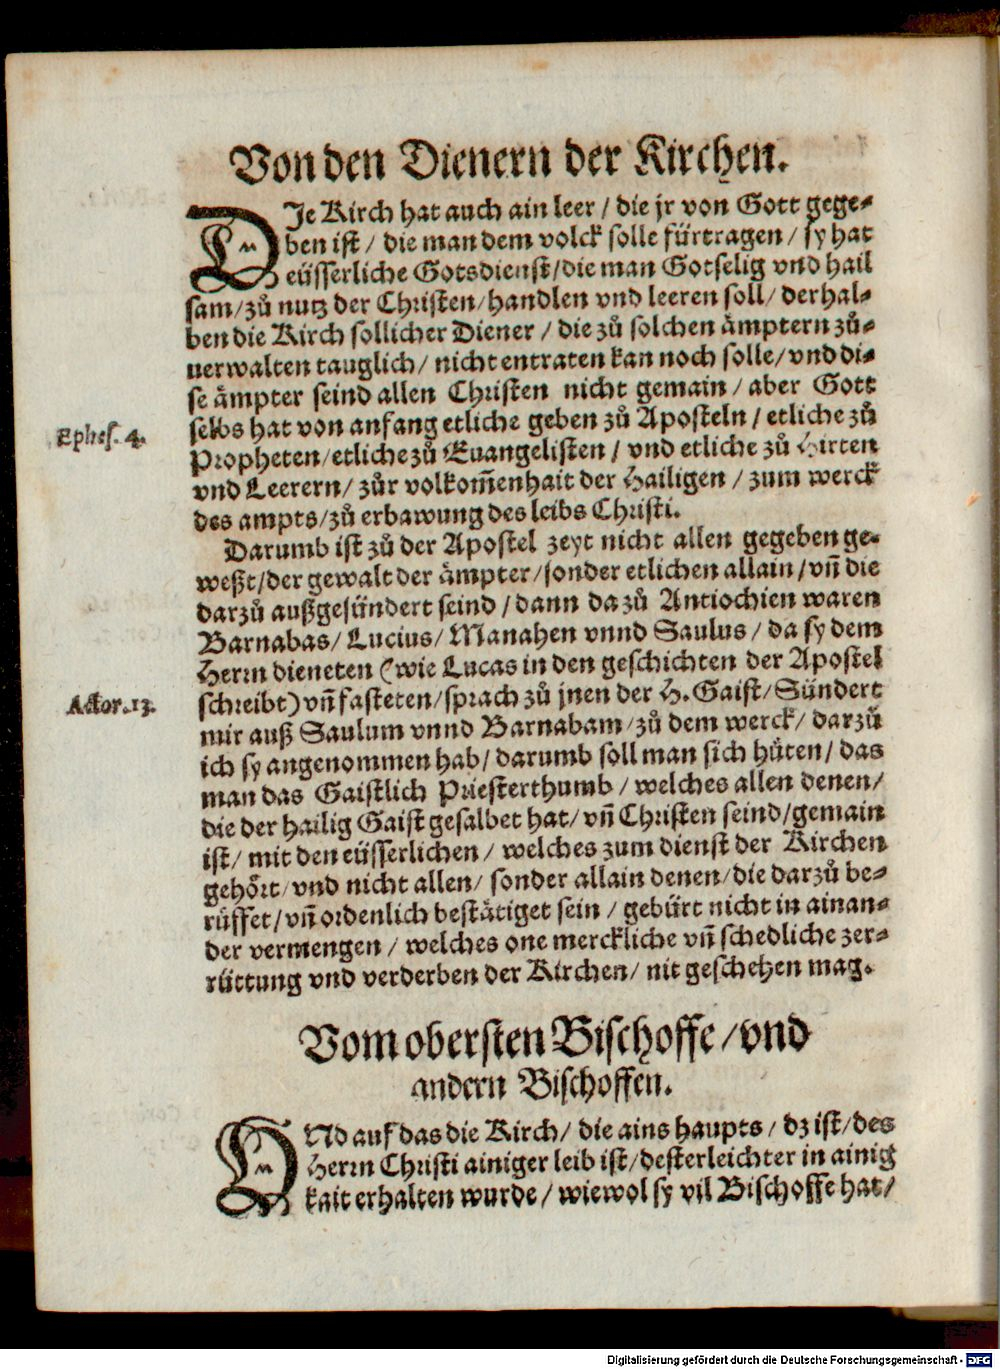 Von den Dienern der Kirchen.
DJe Kirch hat auch ain leer / die jr von Gott gege-
ben ist / die man dem volck solle fürtragen / sy hat
eüsserliche Gotsdienst / die man Gotselig vnd hail
sam / zů nutz der Christen / handlen vnd leeren soll / derhal-
ben die Kirch sollicher Diener / die zů solchen ämptern zů-
uerwalten tauglich / nicht entraten kan noch solle / vnd di-
se ämpter seind allen Christen nicht gemain / aber Gott
selbs hat von anfang etliche geben zů Aposteln / etliche zů
Ephes. 4.
Propheten / etliche zů Euangelisten / vnd etliche zů Hirten
vnd Leerern / zůr volkom̃enhait der Hailigen / zum werck
des ampts / zů erbawung des leibs Christi.
Darumb ist zů der Apostel zeyt nicht allen gegeben ge-
weßt / der gewalt der ämpter / sonder etlichen allain / vñ die
darzů außgesündert seind / dann da zů Antiochien waren
Barnabas / Lucius / Manahen vnnd Saulus / da sy dem
Herrn dieneten (wie Lucas in den geschichten der Apostel
schreibt) vñ fasteten / sprach zů jnen der H. Gaist / Sündert
Actor. 13.
mir auß Saulum vnnd Barnabam / zů dem werck / darzů
ich sy angenommen hab / darumb soll man sich hüten / das
man das Gaistlich Priesterthumb / welches allen denen /
die der hailig Gaist gesalbet hat / vñ Christen seind / gemain
ist / mit den eüsserlichen / welches zum dienst der Kirchen
gehört / vnd nicht allen / sonder allain denen / die darzů be-
rüffet / vñ ordenlich bestätiget sein / gebürt nicht in ainan-
der vermengen / welches one merckliche vñ schedliche zer-
rüttung vnd verderben der Kirchen / nit geschehen mag.
Vom obersten Bischoffe / vnd
andern Bischoffen.
VNd auf das die Kirch / die ains haupts / dz ist / des
Herrn Christi ainiger leib ist / desterleichter in ainig
kait erhalten wurde / wiewol sy vil Bischoffe hat /
Digitalisierung gefördert durch die Deutsche Forschungsgemeinschaft - DFG